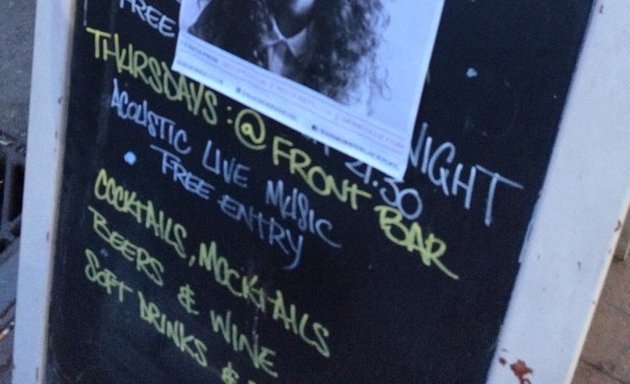 FREE
NIGHT
THURSDAYS: @ FRONT BAR
4:30
ACOUSTIC LIVE MUSIC
• FREE ENTRY
COCKTAILS, MOCKTAILS
BEERS & WINE
SOFT DRINKS &